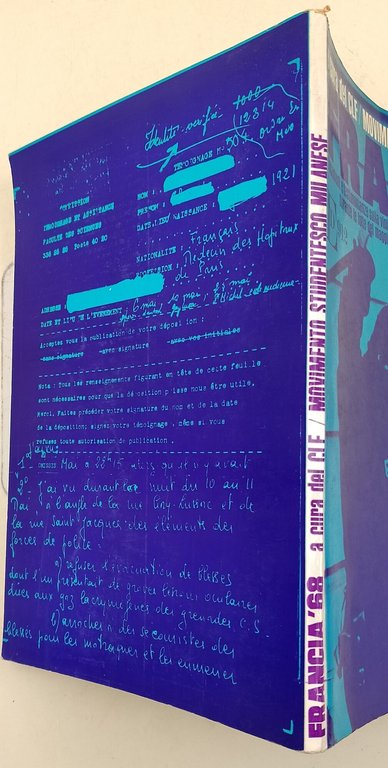 Identité vérifiée
1000
TEMOIGNAGE N° 504
NOM :
PRENOM :
DATE, LIEU NAISSANCE : 1921
COMMISSION
TEMOIGNAGE ET ASSISTANCE
FACULTE DES SCIENCES
336 25 20 Poste 40 20
NATIONALITE : Français
PROFESSION : Médecin des Hopitaux
de Paris
ADRESSE :
DATE ET LIEU DE L'EVENEMENT : 6 mai 10 mai
Acceptez vous la publication de votre déposition :
sans signature -avec signature -avec vos initiales
Nota : Tous les renseignements figurant en tête de cette feuille
sont nécessaires pour que la déposition puisse nous être utile,
Merci, Faites précéder votre signature du nom et de la date
de la déposition; signez votre témoignage, même si vous
refusez toute autorisation de publication .
Mai à 23h15 alors qu'il y avait
2° J'ai vu durant la nuit du 10 au 11
Mai à l'angle de la rue Gay-Lussac et de
la rue Saint Jacques des éléments des
forces de police :
a) refuser l'évacuation de blessés
dont l'un présentait de graves lésions oculaires
dues aux gaz lacrymogènes des grenades C.S.
b) arracher à des secouristes des
blessés pour les matraquer et les emmener
FRANCIA '68 a cura del CLF / MOVIMENTO STUDENTESCO MILANESE